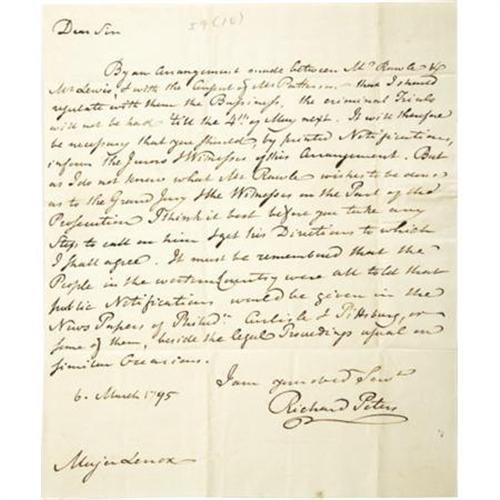 59 (10)
Dear Sir
By an Arrangement made between Mr. Rawle &
Mr Lewis, & with the Consent of Mr Patterson that I should
regulate with them the Bussiness, the criminal Trials
will not be had till the 4th of May next. It will therefore
be necessary that you should, by printed Notifications,
inform the Jurors & Witnesses of this Arrangement. But
as I do not know what Mr Rawle wishes to be done
as to the Grand Jury & the Witnesses on the Part of the
Prosecution I think it best before you take any
Steps to call on him & get his Directions to which
I shall agree. It must be remembered that the
People in the western Country were all told that
public Notifications would be given in the
News Papers of Philada. Carlisle & Pittsburg, or
some of them, beside the legal Proceedings usual on
similar Occasions.
I am yr obed Servt
6. March 1795
Richard Peters
Major Lenox